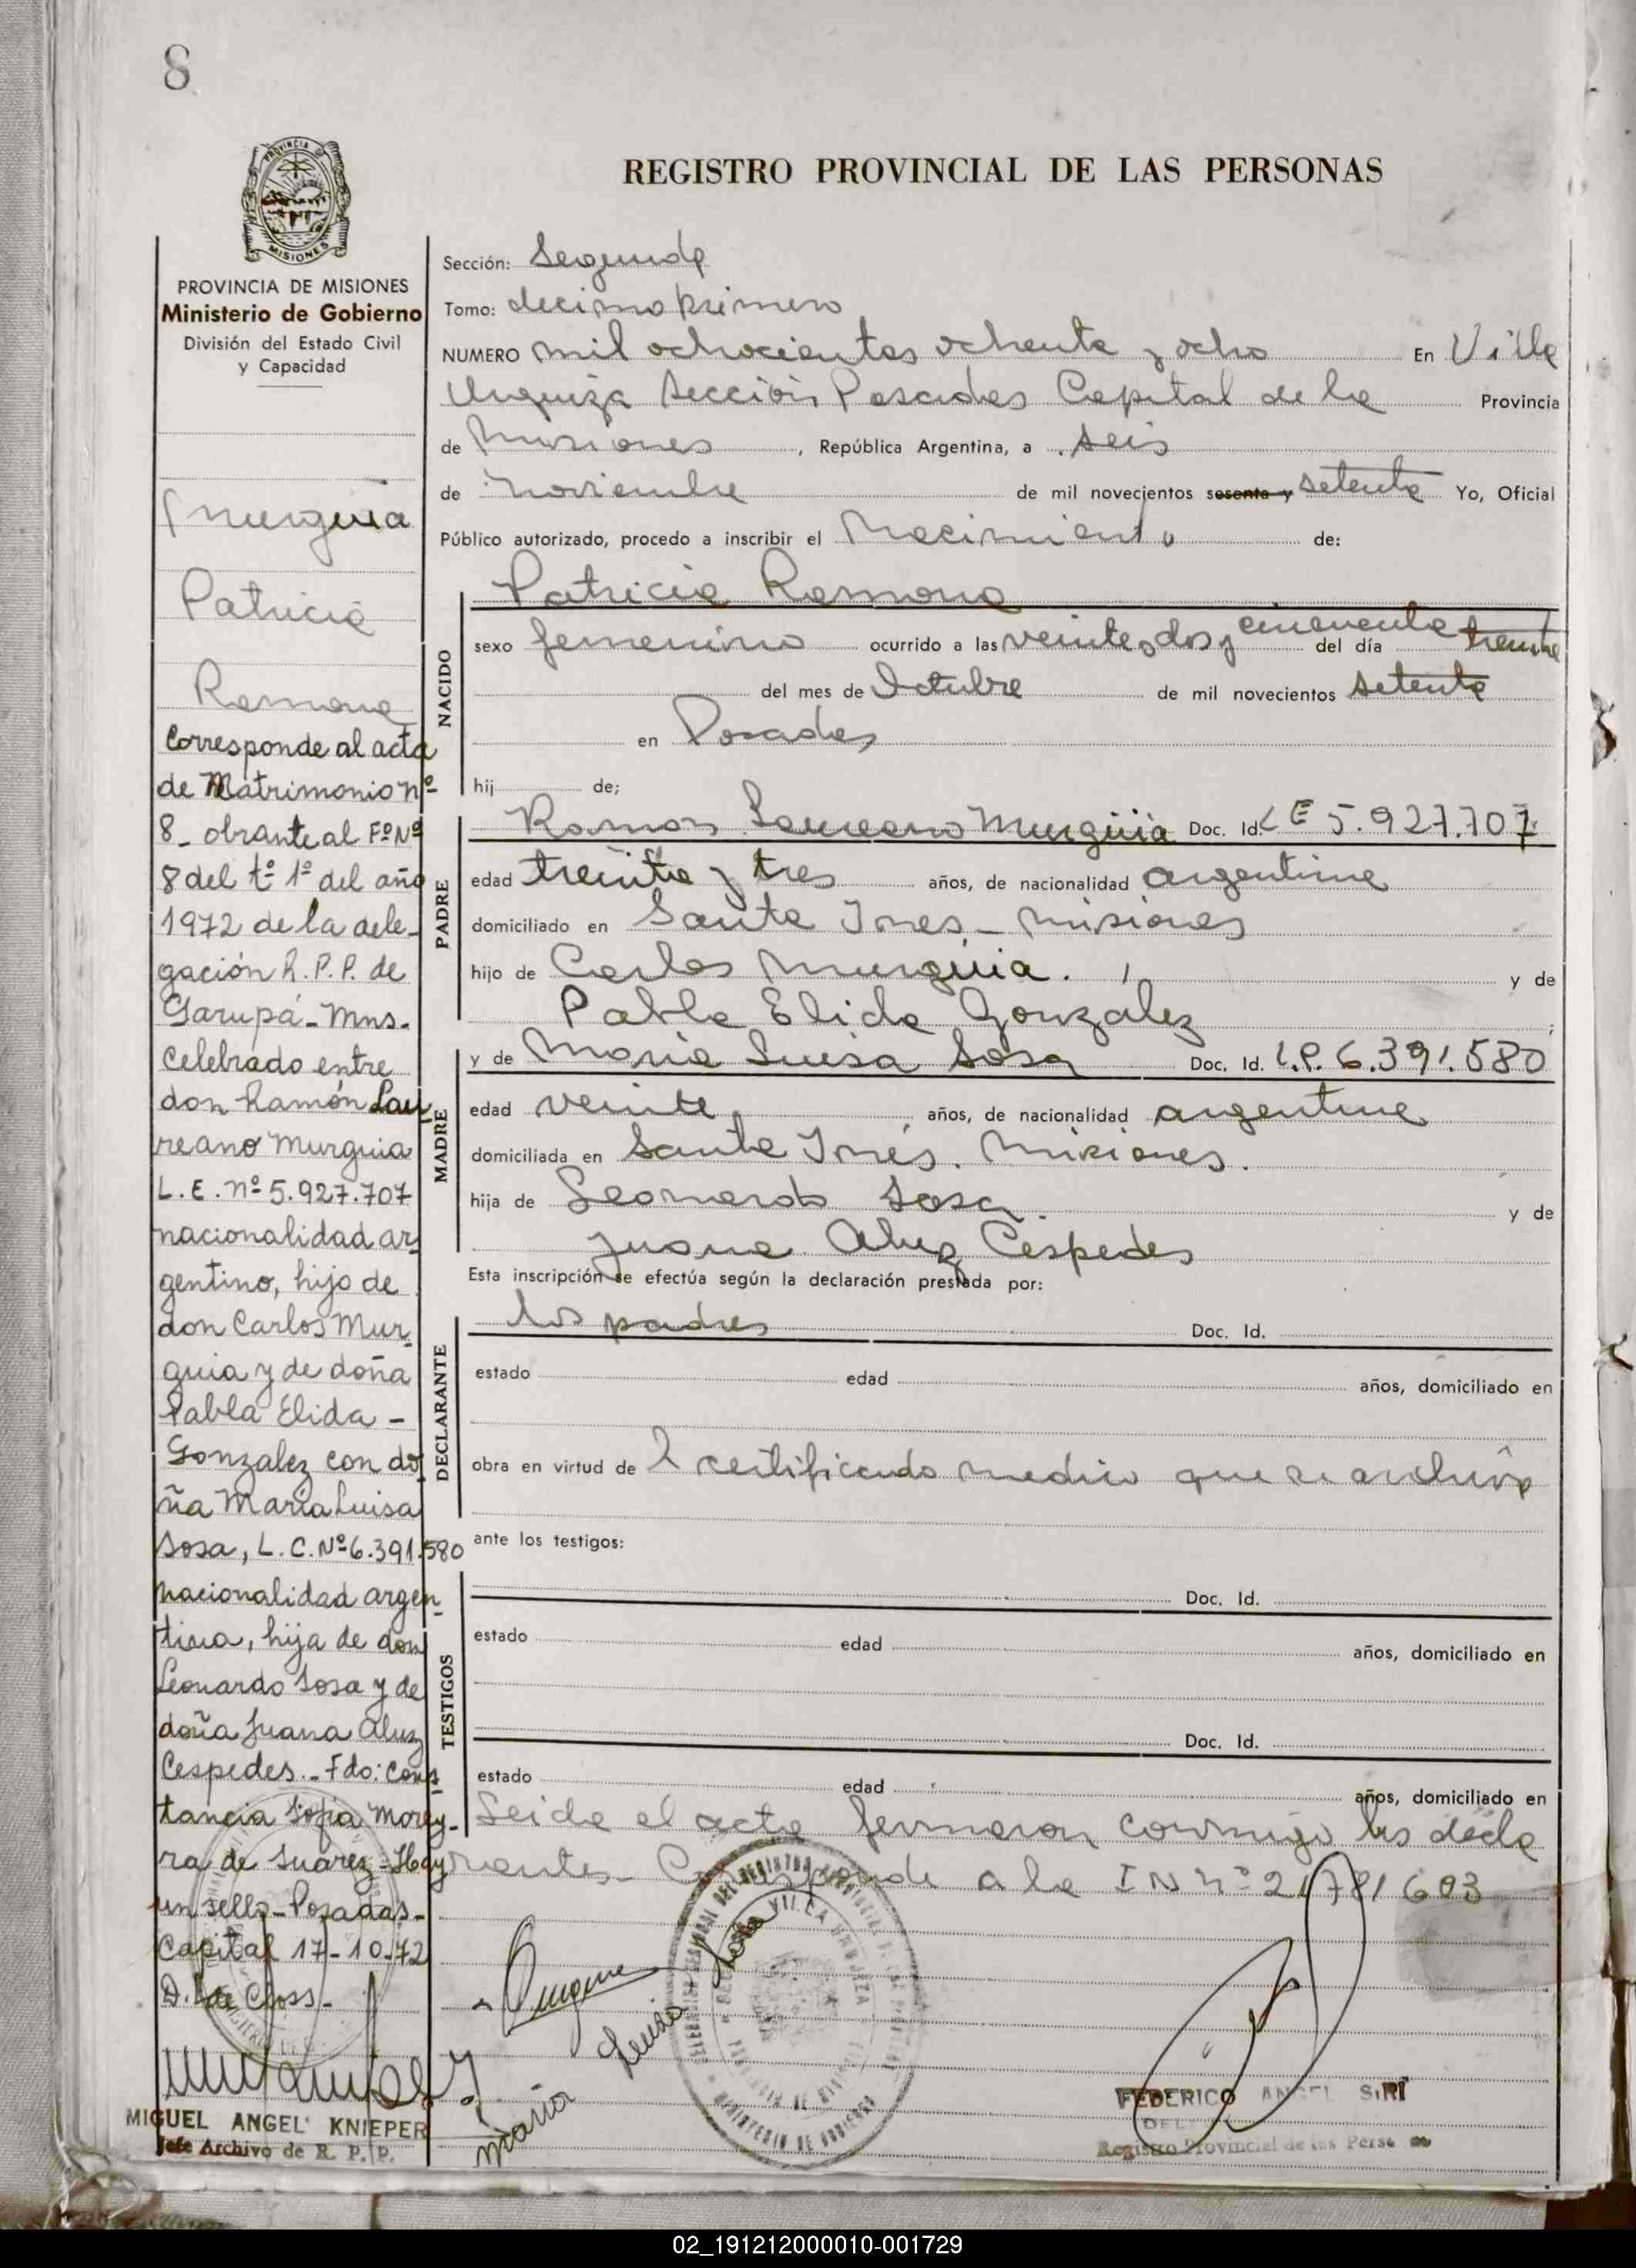 8
REGISTRO PROVINCIAL DE LAS PERSONAS
PROVINCIA DE MISIONES
Ministerio de Gobierno
División del Estado Civil
y Capacidad
Murguia
Patricia
Ramona
Corresponde al acta
de Matrimonio nº
8_ obrante al Fº Nº
8 del tº 1º del año
1972 de la dele-
gación R.P.P. de
Garupá-Mns.
Celebrado entre
don Ramón Lau
reano Murguia
L.E. nº 5.927.707
nacionalidad ar
gentino, hijo de
don Carlos Mur
guia y de doña
Pabla Elida -
Gonzalez con do
ña Maria Luisa
Sosa, L.C. Nº 6.391.580
nacionalidad argen
tina, hija de don
Leonardo Sosa y de
doña Juana Aluz
Cespedes._ Fdo: Cons
tancia Sofia Morey-
ra de Suárez - Hay
un sello - Posadas -
Capital 17-10-72
D. L. de Closs -
MIGUEL ANGEL KNIEPER
Jefe Archivo de R. P. P.
Sección: Segunda
Tomo: decimo primero
NUMERO mil ochocientos ochenta y ocho En Villa
Urquiza Sección Posadas Capital de la Provincia
de Misiones, República Argentina, a seis
de noviembre de mil novecientos sesenta y setenta Yo, Oficial
Público autorizado, procedo a inscribir el Nacimiento de:
NACIDO
Patricia Ramona
sexo femenino ocurrido a las veinte y dos y cincuenta del día treinta
del mes de Octubre de mil novecientos setenta
en Posadas
hij de;
PADRE
Ramon Laureano Murguia Doc. Id. L E 5.927.707
edad treinta y tres años, de nacionalidad argentina
domiciliado en Santa Ines - Misiones
hijo de Carlos Murguia. y de
Pabla Elida Gonzalez;
MADRE
y de Maria Luisa Sosa Doc. Id. L.C. 6.391.580
edad veinte, años, de nacionalidad argentina
domiciliada en Santa Inés. Misiones.
hija de Leonardo Sosa y de
Juana Aluz Cespedes
Esta inscripción se efectúa según la declaración prestada por:
DECLARANTE
los padres Doc. Id.
estado edad años, domiciliado en
obra en virtud de certificado medico que se archiva
ante los testigos:
TESTIGOS
Doc. Id.
estado edad años, domiciliado en
Doc. Id.
estado edad años, domiciliado en
Leida el acta firmaron conmigo los decla
rantes - Corresponde a la I N Nº 21781603
Maria Luisa Sosa
FEDERICO ANGEL SIRI
Registro Provincial de las Personas
02_191212000010-001729